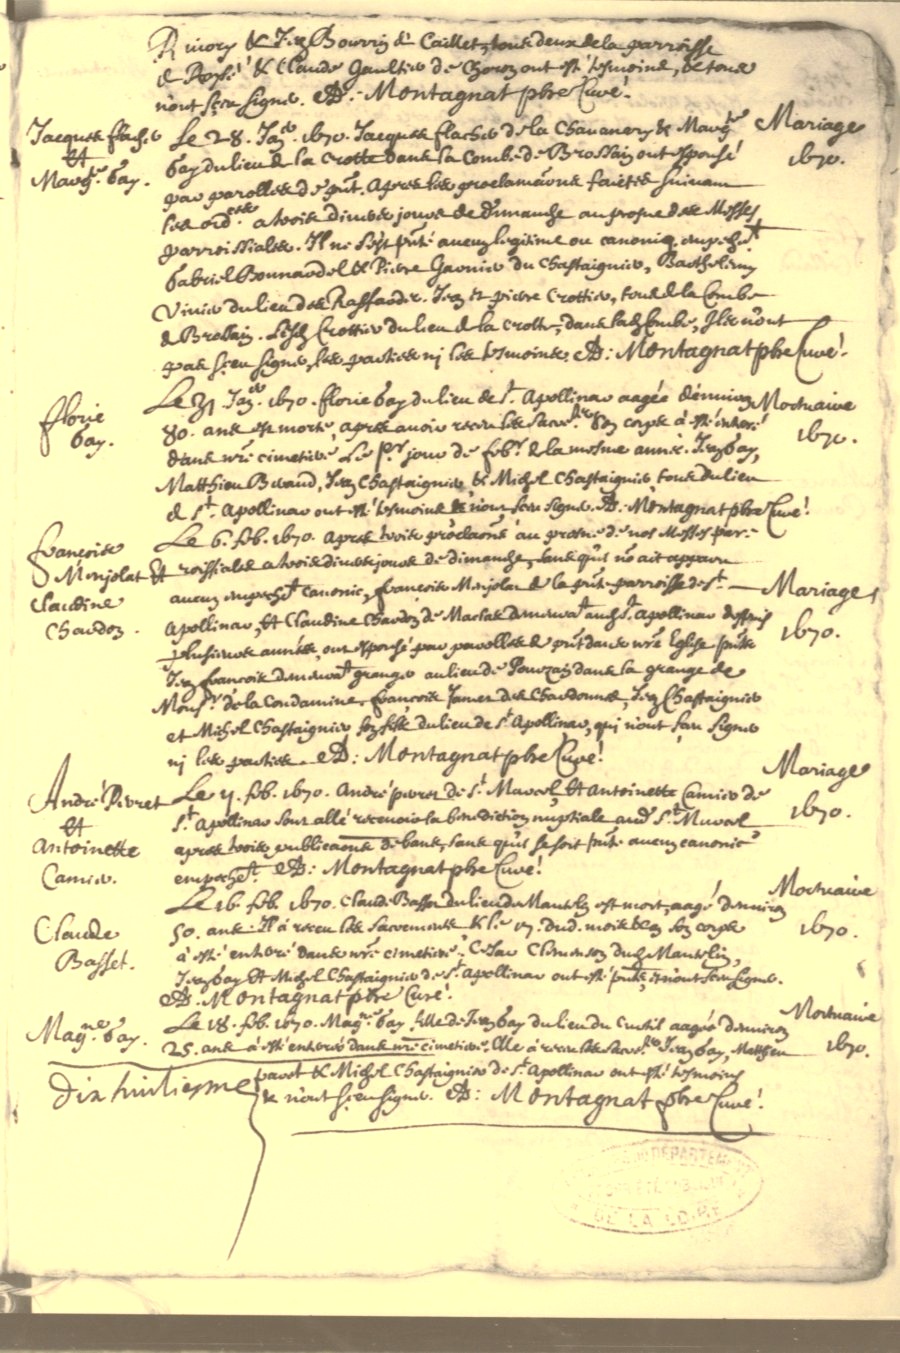 Rivory & Jean Bourrin de Caillet, tous deux de la parroisse
de & Claude Gaultier de ont esté tesmoins, & tous
n'ont sçeu signe. AD: Montagnat pbre Curé.
Jacques flachier
Et
Marg.te bay.
Le 28. Jan.er 1670. Jacques flachier de la Chavanery & Marg.te
bay du lieu de la Crotte dans la Combe de Brossain ont esposé
par parolles de pnt. Apres les proclamaons faictes suivant
les ord.es a trois divers jours de dimanche au prosne des Messes
parroissiales. Il ne s'est pnté aucun legitime ou canoniq. empeche.t
Gabriel Bonnardel & Pierre Garnier du Chastaignier, Barthelemy
Vinier du lieu des Jean et pierre Crottier, tous de la Combe
de Brossain. Crottier du lieu de la Crotte, dans lad. Combe, Ils n'ont
pas sçeu signe, les parties nj les tesmoins. AD: Montagnat pbre Curé.
Mariage
1670.
florie
bay.
Le 31 Jan.er 1670. florie bay du lieu de s.t Apollinar aagée d'environ
80. ans est morte, apres avoir receu les Sacre.ts Son corps à esté enterré
dans nre cimetiere, Le p.er jour de feb.r de la mesme année. Jean bay,
Matthieu Jean Chastaignier & Michel Chastaignier, tous du lieu
de s.t Apollinar ont esté tesmoins & n'ont sceu signe. AD. Montagnat pbre Curé.
Mortuaire
1670.
françois
Monjolat Et
Claudine
Chardon.
Le 6. feb. 1670. Apres trois proclaons au prosne de nos Messes par-
roissiales a trois divers jours de dimanche, sans qu'il n'en ait apparu
aucun empeche.t canonic, françois Monjolat de la pnte parroisse de s.t
Apollinar, Et Claudine Chardon de Maclas demeura.t aud. s.t Apollinar despuis
plusieurs années, ont esposé par parolles de pnt dans nre Eglise pnts
Jean françois demeura.t granger au lieu de dans la grange de
Mons.r de la Condamine, françois Jamet des Chardonnes, Jean Chastaignier
et Michel Chastaignier son fils du lieu de s.t Apollinar, qui n'ont sçeu signe
nj les parties. AD: Montagnat pbre Curé.
Mariage
1670.
André Peyret
Et
Antoinette
Camier.
Le feb. 1670. André peyret de s.t Marcel, Et Antoinette Camier de
s.t Apollinar sont allé recevoir la benediction nuptiale aud. s.t Marcel
apres trois publicaons de bans, sans qu'il se soit pnté aucun canonic
empeche.t AD: Montagnat pbre Curé.
Mariage
1670.
Claude
Basset.
Le 16. feb. 1670. Claude Basset du lieu de Mantelin est mort, aagé d'environ
50. ans. Il à receu les sacrements & le 17. dud. mois & an son corps
à esté enterré dans nre cimetiere. Clemenson dud. Mantelin,
Jean bay Et Michel Chastaignier de s.t Apollinar ont esté pnts, & n'ont sceu signe.
AD. Montagnat pbre Curé.
Mortuaire
1670.
Mag.ne bay.
Le 18. feb. 1670. Mag.ne bay fille de Jean bay du lieu du Cuctil aagée d'environ
25. ans à esté enterrée dans nre cimetiere. Elle à receu les sacre.ts Jean bay, Matthieu
& Michel Chastaignier de s.t Apollinar ont esté tesmoins
& n'ont sçeu signe. AD: Montagnat pbre Curé.
Mortuaire
1670.
Dix huitiesme
DEPARTEM
DE LA LOIRE